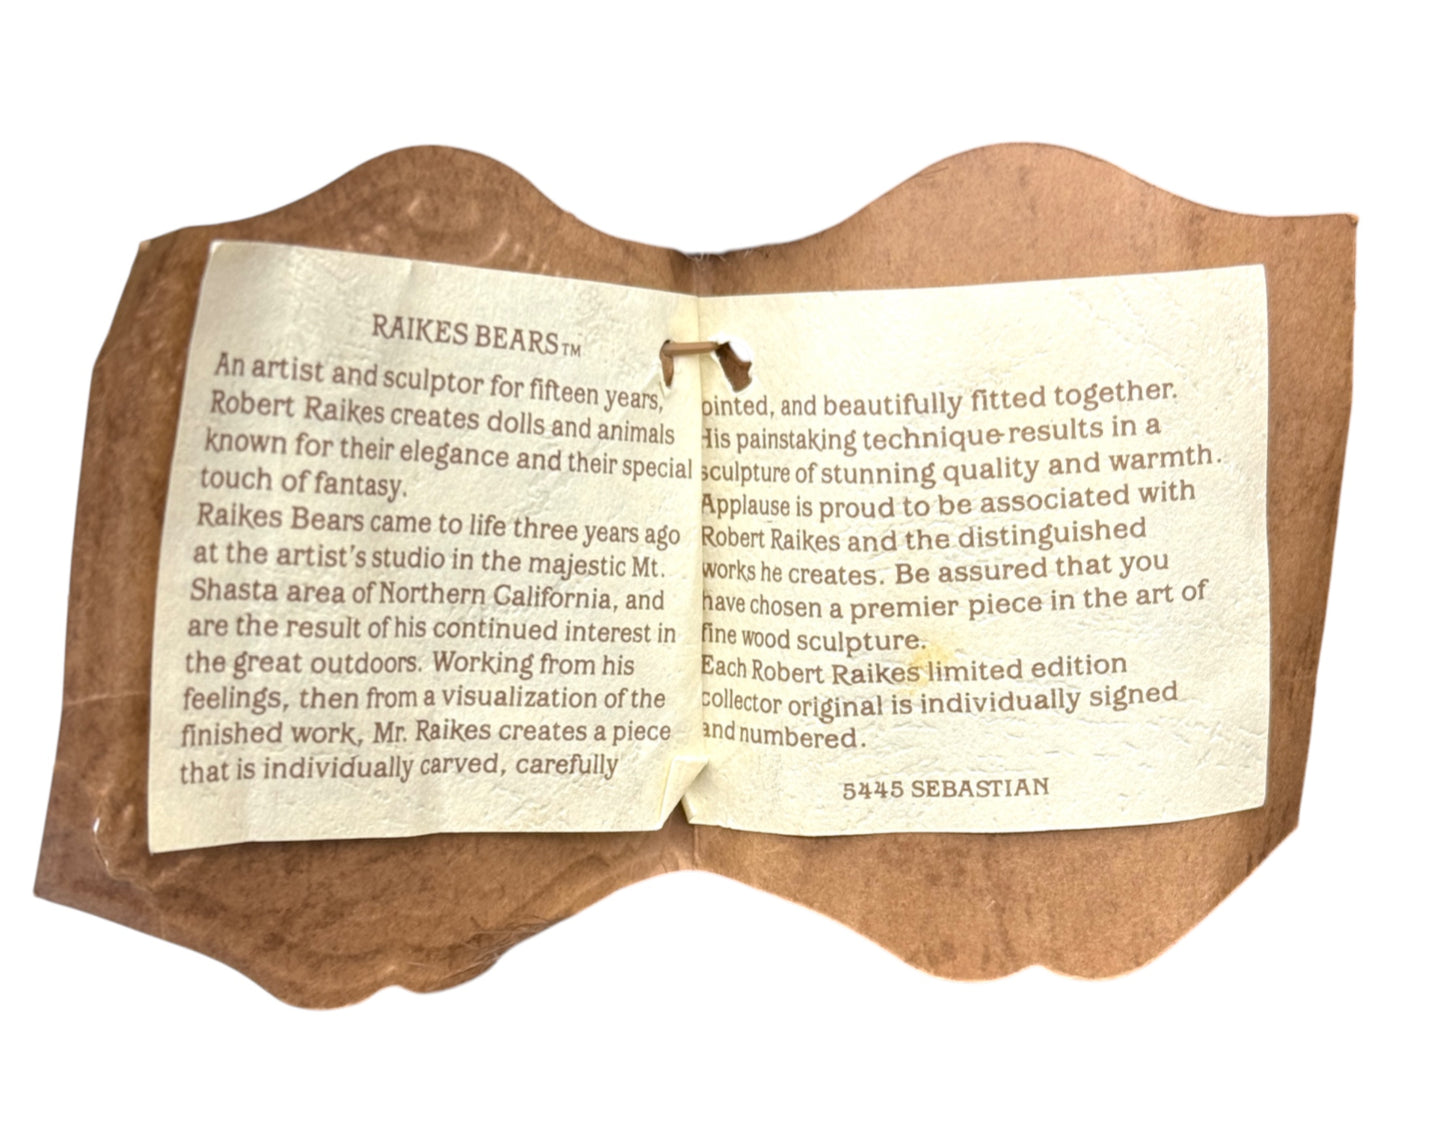 RAIKES BEARS™
An artist and sculptor for fifteen years,
Robert Raikes creates dolls and animals
known for their elegance and their special
touch of fantasy.
Raikes Bears came to life three years ago
at the artist's studio in the majestic Mt.
Shasta area of Northern California, and
are the result of his continued interest in
the great outdoors. Working from his
feelings, then from a visualization of the
finished work, Mr. Raikes creates a piece
that is individually carved, carefully
ointed, and beautifully fitted together.
His painstaking technique results in a
sculpture of stunning quality and warmth.
Applause is proud to be associated with
Robert Raikes and the distinguished
works he creates. Be assured that you
have chosen a premier piece in the art of
fine wood sculpture.
Each Robert Raikes limited edition
collector original is individually signed
and numbered.
5445 SEBASTIAN